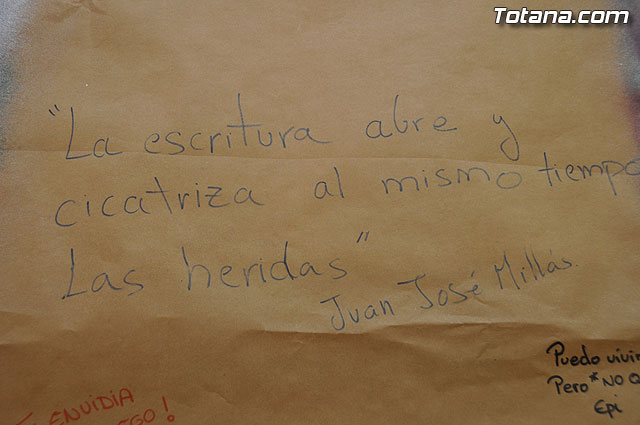 Totana.com
"La escritura abre y
cicatriza al mismo tiempo
Las heridas"
Juan José Millás
Puedo vivir
Pero *NO
Epi
ENVIDIA